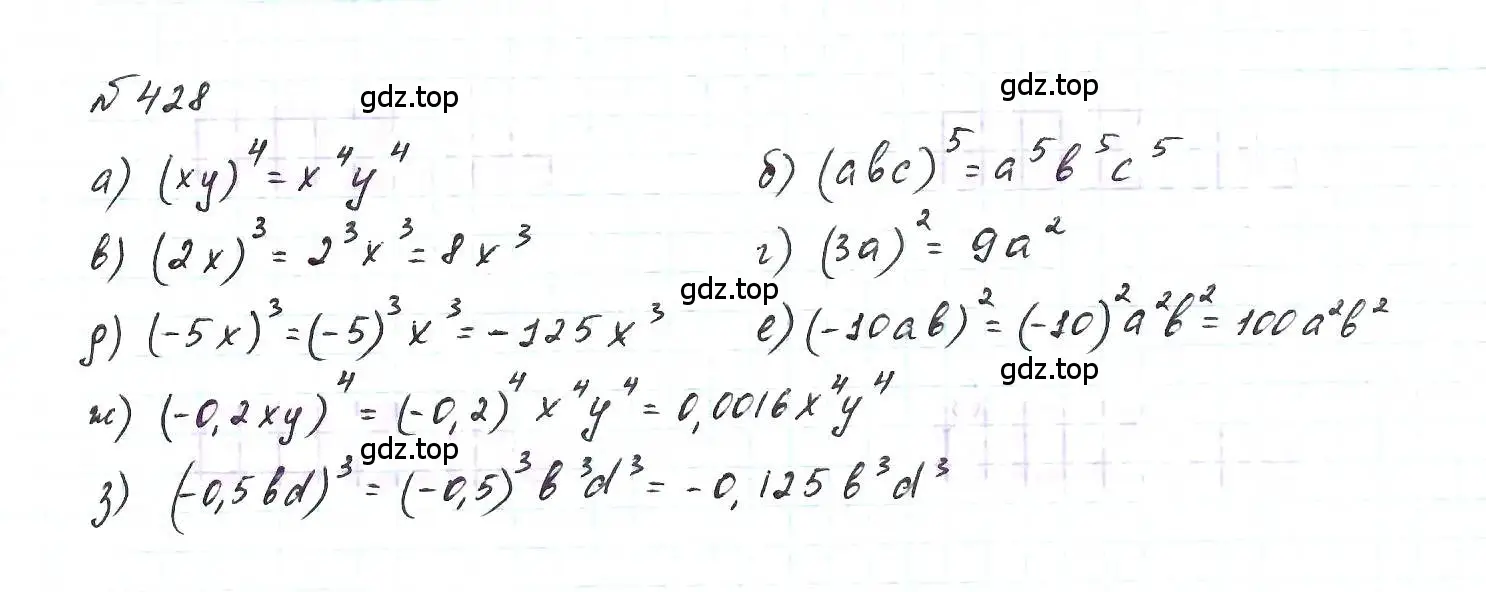 № 428 gdz.top gdz.top
а) (xy)⁴ = x⁴y⁴ б) (abc)⁵ = a⁵b⁵c⁵
в) (2x)³ = 2³x³ = 8x³ г) (3a)² = 9a²
gdz.top
д) (-5x)³ = (-5)³x³ = -125x³ е) (-10ab)² = (-10)²a²b² = 100a²b²
gdz.top
ж) (-0,2xy)⁴ = (-0,2)⁴x⁴y⁴ = 0,0016x⁴y⁴
gdz.top
з) (-0,5bd)³ = (-0,5)³b³d³ = -0,125b³d³